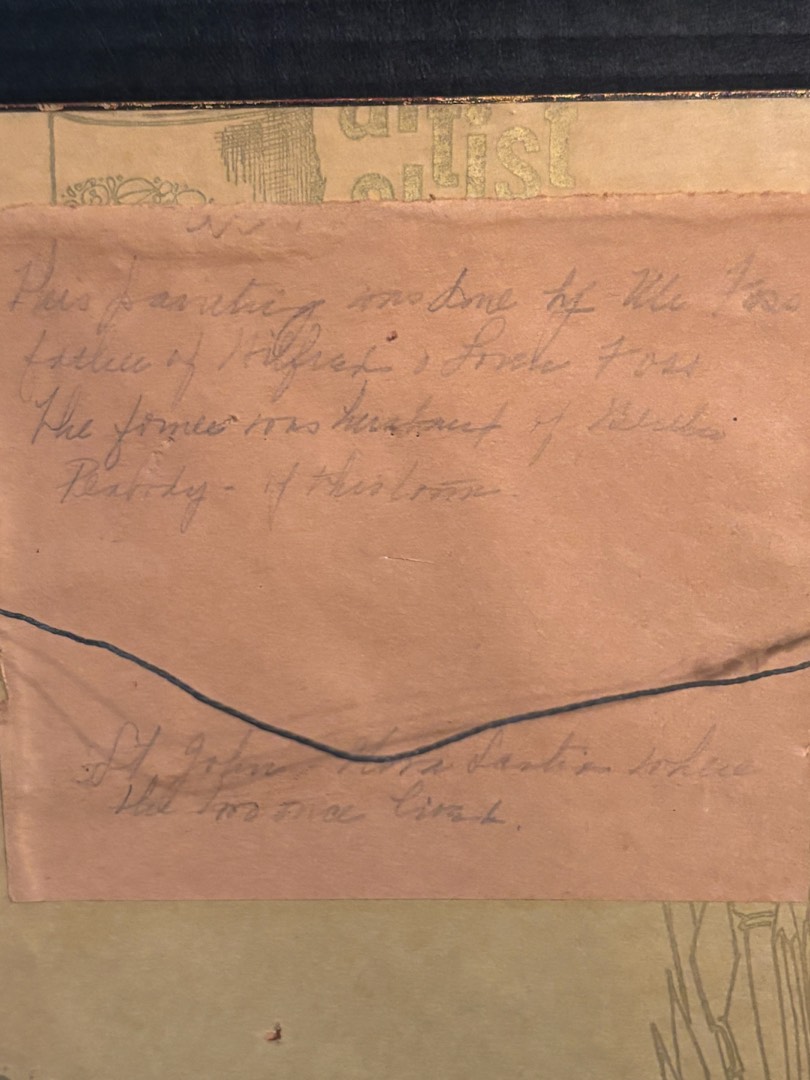 artist
This painting was done by Mr Foss
father of Wilfred & Loren Foss
The former was husband of
Peabody - of this town
St John, Nova Scotia where
the two once lived.